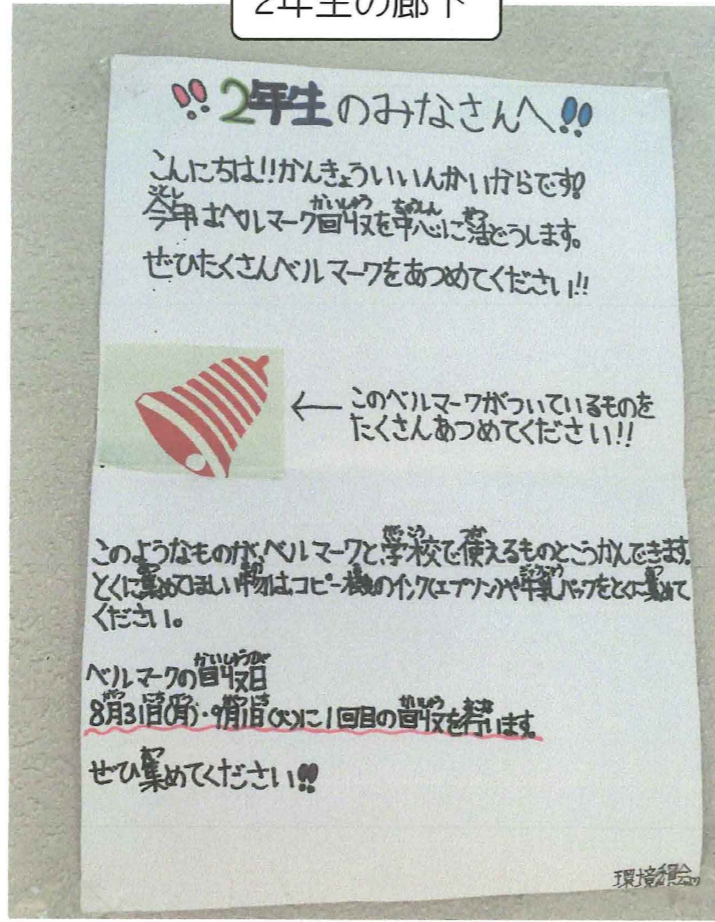 2年生の廊下
!!2年生のみなさんへ!!
こんにちは!!かんきょういいんかいからです!!
今年はベルマーク回収を中心に活どうします。
ぜひたくさんベルマークをあつめてください!!
←このベルマークがついているものを
たくさんあつめてください!!
このようなものが、ベルマークと、学校で使えるものとこうかんできます。
とくに集めてほしい物は、コピー機のインク(エプソン)や牛乳パックをとくに集めて
ください。
ベルマークの回収日
8月31日(月)・9月1日(火)に1回目の回収を行います。
ぜひ集めてください!!